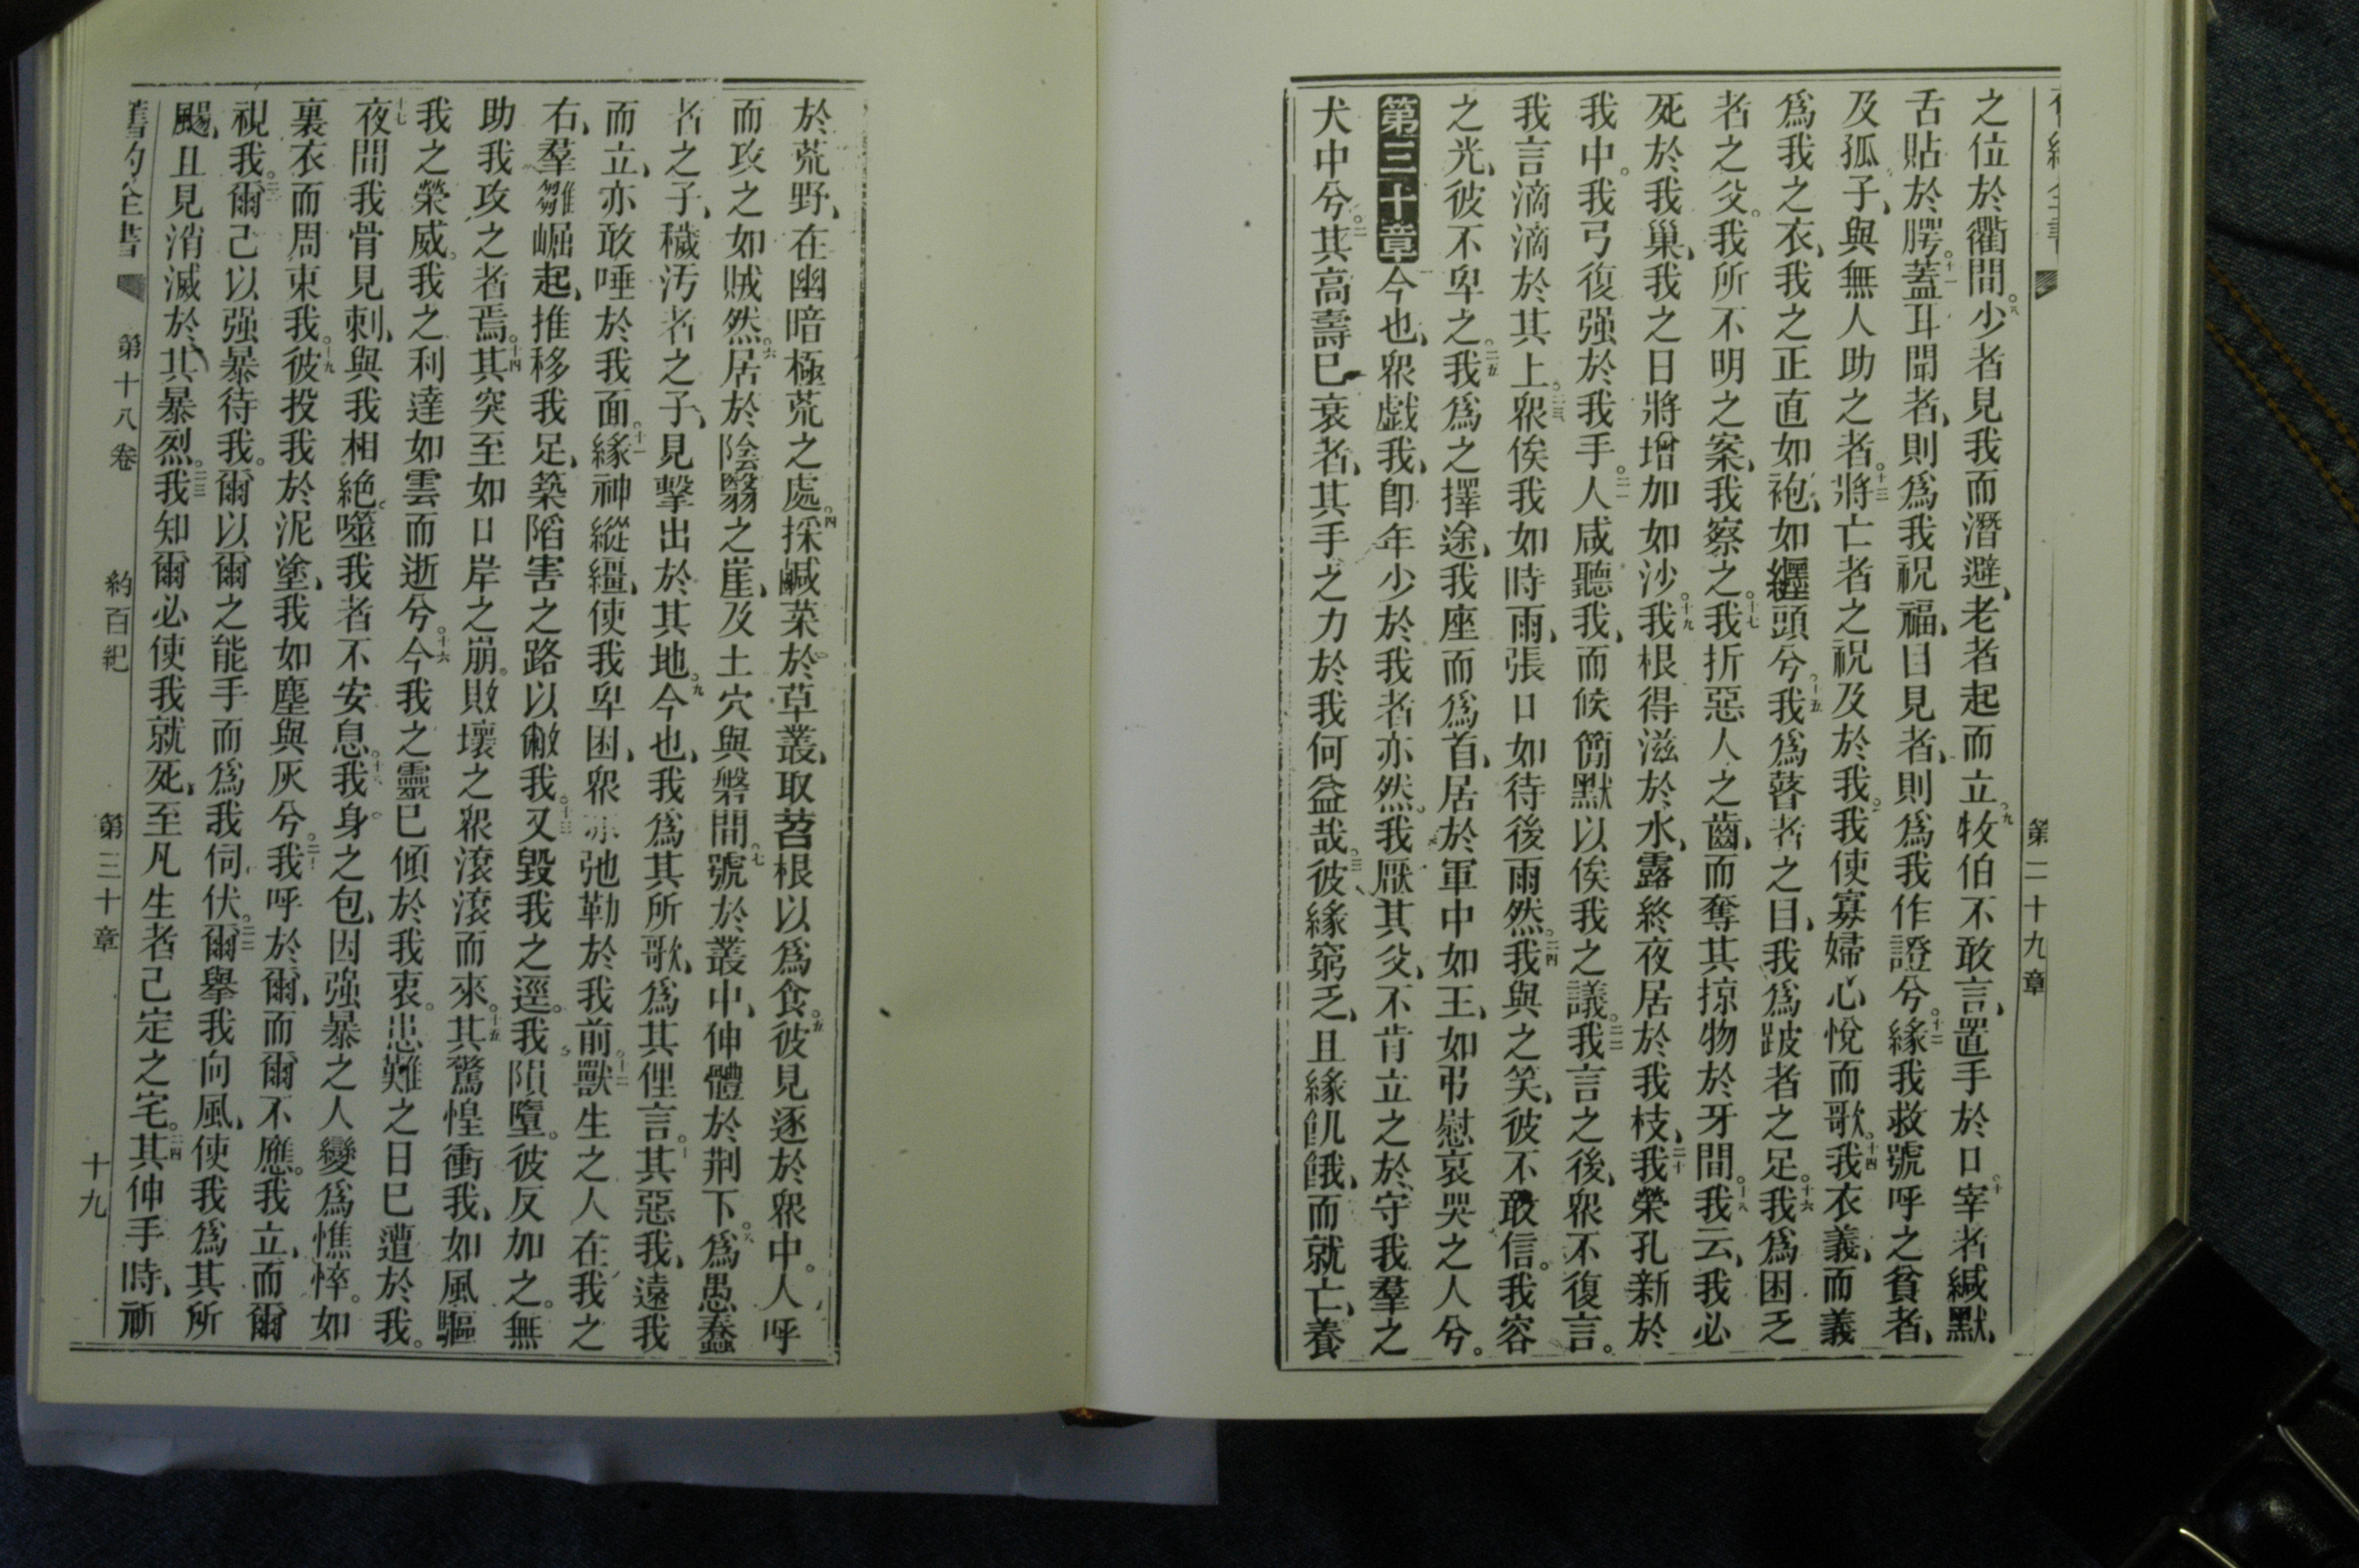 第二十九章
之位於衢間。八少者見我而潛避、老者起而立。九牧伯不敢言、置手於口。十宰者緘默、
舌貼於腭。十一蓋耳聞者、則爲我祝福、目見者、則爲我作證兮。十二緣我救號呼之貧者、
及孤子、與無人助之者。十三將亡者之祝及於我。我使寡婦心悅而歌。十四我衣義、而義
爲我之衣、我之正直如袍、如纏頭兮。十五我爲瞽者之目、我爲跛者之足。十六我爲困乏
者之父。我所不明之案、我察之。十七我折惡人之齒、而奪其掠物於牙間。十八我云、我必
死於我巢、我之日將增加如沙。十九我根得滋於水、露終夜居於我枝、二十我榮孔新於
我中。我弓復强於我手。二一人咸聽我、而候簡默以俟我之議。二二我言之後、衆不復言。
我言滴滴於其上。二三衆俟我如時雨、張口如待後雨然。二四我與之笑、彼不敢信。我容
之光、彼不卑之。二五我爲之擇途、我座而爲首、居於軍中如王、如弔慰哀哭之人兮。
第三十章一今也、衆戲我、卽年少於我者亦然。我厭其父、不肯立之於守我羣之
犬中兮。二其高壽已衰者、其手之力於我何益哉。三彼緣窮乏、且緣飢餓、而就亡、養
於荒野、在幽暗極荒之處。四採鹹菜於草叢、取苕根以爲食。五彼見逐於衆中。人呼
而攻之如賊然。六居於陰翳之崖、及土穴與磐間。七號於叢中、伸體於荆下。八爲愚蠢
者之子、穢汚者之子、見擊出於其地。九今也、我爲其所歌、爲其俚言。十其惡我、遠我
而立、亦敢唾於我面。十一緣神縱繮、使我卑困、衆亦弛勒於我前。十二獸生之人在我之
右、羣雛崛起、推移我足、築陷害之路以敝我。十三又毀我之逕。我隕墮。彼反加之。無
助我攻之者焉。十四其突至如口岸之崩。敗壞之衆滾滾而來。十五其驚惶衝我、如風驅
我之榮威。我之利達如雲而逝兮。十六今我之靈已傾於我衷。患難之日已遭於我。
十七夜間我骨見刺、與我相絕。噬我者不安息。十八我身之包、因强暴之人變爲憔悴。如
裏衣而周束我。十九彼投我於泥塗、我如塵與灰兮。二十我呼於爾、而爾不應。我立、而爾
視我。二一爾己以强暴待我。爾以爾之能手而爲我伺伏。二二爾舉我向風、使我爲其所
颺、且見消滅於其暴烈。二三我知爾必使我就死、至凡生者己定之宅。二四其伸手時、祈
舊約全書 第十八卷 約百紀 第三十章 十九